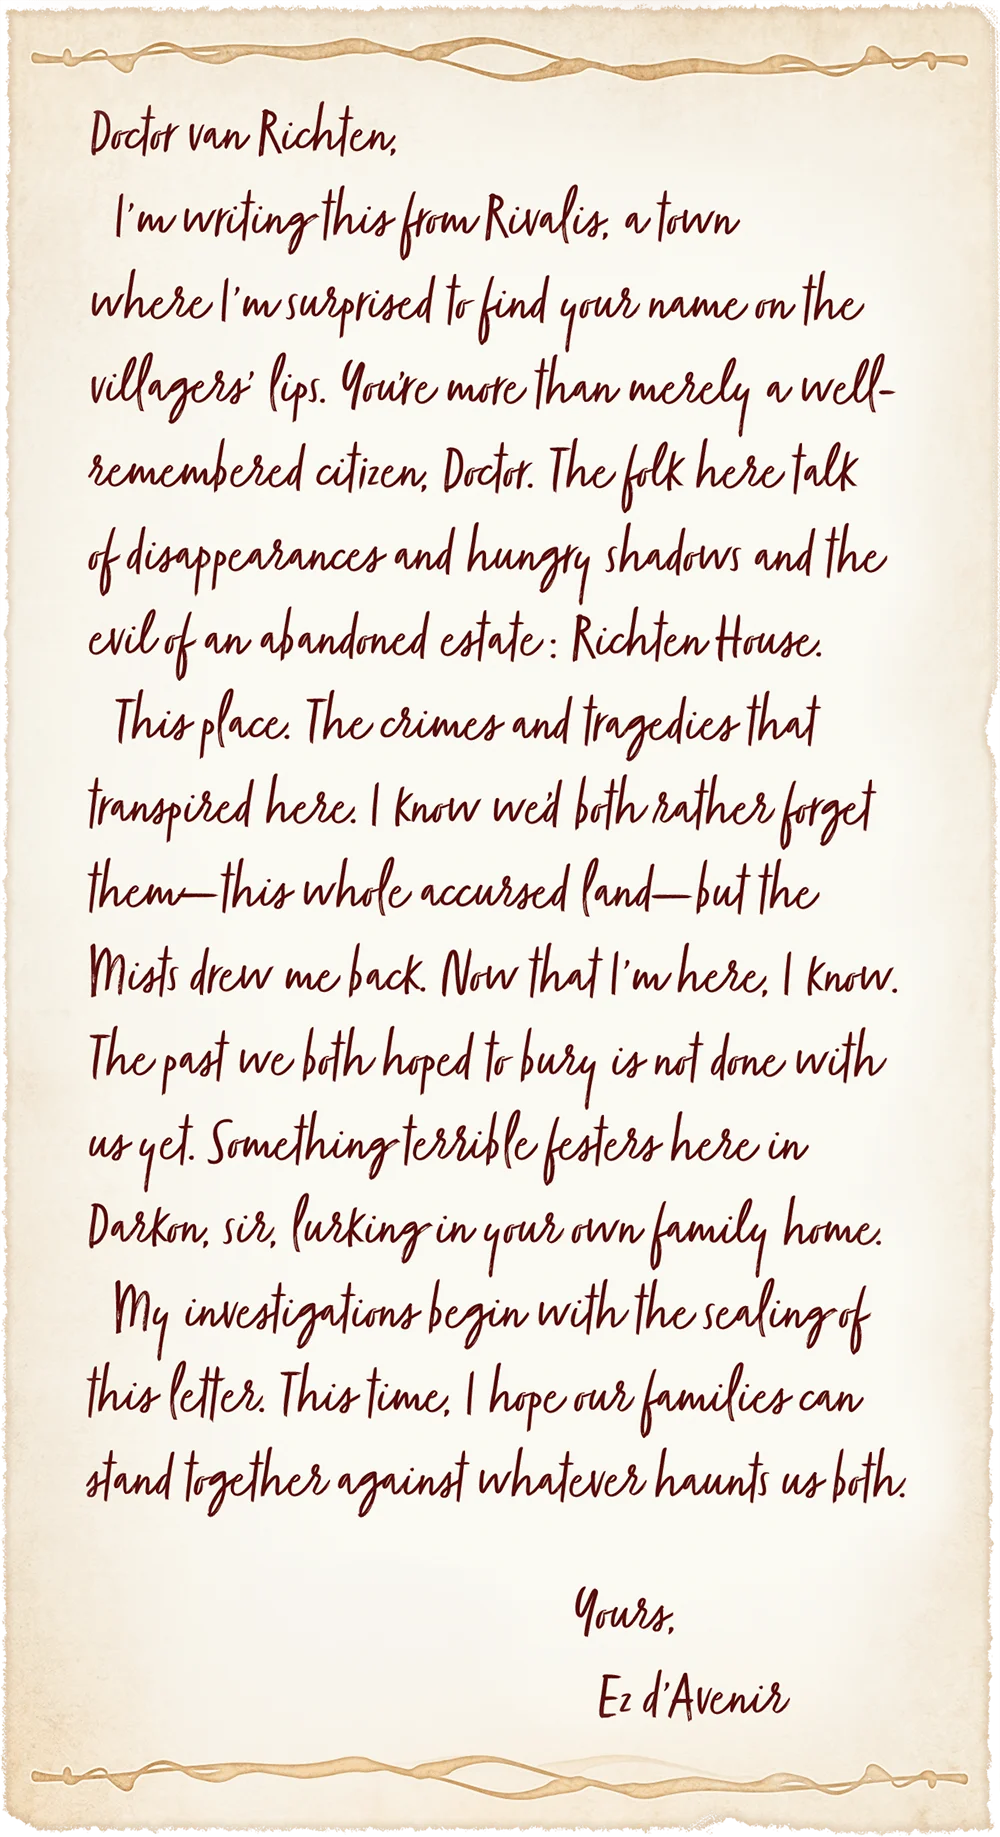 Doctor van Richten,
I'm writing this from Rivalis, a town
where I'm surprised to find your name on the
villagers' lips. You're more than merely a well-
remembered citizen, Doctor. The folk here talk
of disappearances and hungry shadows and the
evil of an abandoned estate: Richten House.
This place. The crimes and tragedies that
transpired here. I know we'd both rather forget
them—this whole accursed land—but the
Mists drew me back. Now that I'm here, I know.
The past we both hoped to bury is not done with
us yet. Something terrible festers here in
Darkon, sir, lurking in your own family home.
My investigations begin with the sealing of
this letter. This time, I hope our families can
stand together against whatever haunts us both.
Yours,
Ez d'Avenir